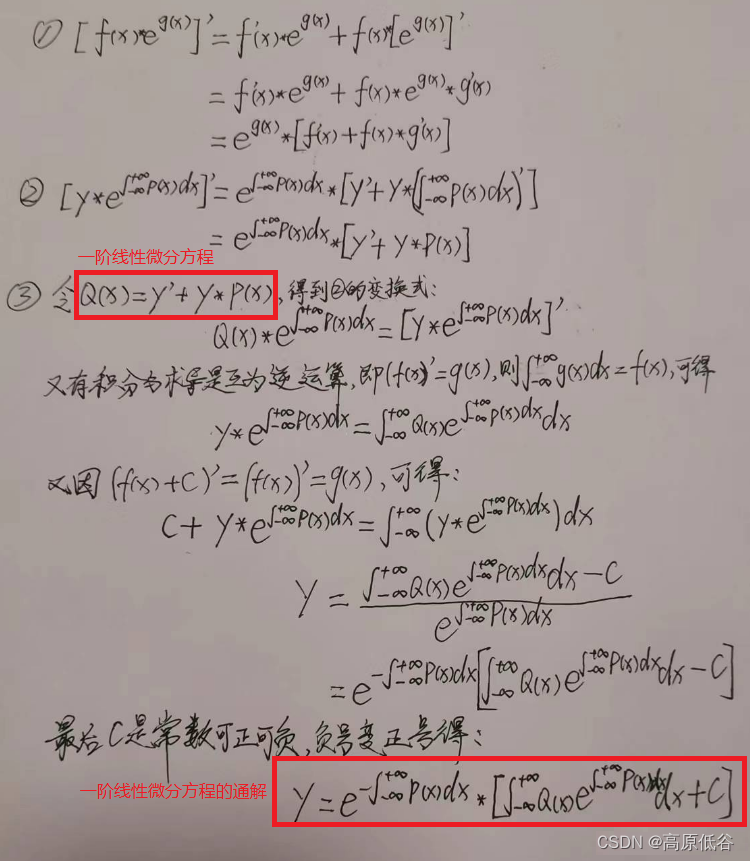 ① [f(x)*e^{g(x)}]' = f'(x)*e^{g(x)} + f(x)*[e^{g(x)}]'
= f'(x)*e^{g(x)} + f(x)*e^{g(x)}*g'(x)
= e^{g(x)}*[f'(x)+f(x)*g'(x)]
② [y*e^{∫_{-∞}^{+∞}P(x)dx}]' = e^{∫_{-∞}^{+∞}P(x)dx}*[y'+y*(∫_{-∞}^{+∞}P(x)dx)']
= e^{∫_{-∞}^{+∞}P(x)dx}*[y'+y*P(x)]
一阶线性微分方程
③ 令Q(x)=y'+y*P(x),得到②的变换式:
Q(x)*e^{∫_{-∞}^{+∞}P(x)dx}=[y*e^{∫_{-∞}^{+∞}P(x)dx}]'
又有积分与求导是互为逆运算,即(f(x))'=g(x),则∫_{-∞}^{+∞}g(x)dx=f(x),可得
y*e^{∫_{-∞}^{+∞}P(x)dx}=∫_{-∞}^{+∞}Q(x)e^{∫_{-∞}^{+∞}P(x)dx}dx
又因(f(x)+C)'=(f(x))'=g(x),可得:
C+y*e^{∫_{-∞}^{+∞}P(x)dx}=∫_{-∞}^{+∞}(y*e^{∫_{-∞}^{+∞}P(x)dx})dx
y=\frac{∫_{-∞}^{+∞}Q(x)e^{∫_{-∞}^{+∞}P(x)dx}dx-C}{e^{∫_{-∞}^{+∞}P(x)dx}}
=e^{-∫_{-∞}^{+∞}P(x)dx}[∫_{-∞}^{+∞}Q(x)e^{∫_{-∞}^{+∞}P(x)dx}dx-C]
最后C是常数可正可负,负号变正号得:
一阶线性微分方程的通解
y=e^{-∫_{-∞}^{+∞}P(x)dx}*[∫_{-∞}^{+∞}Q(x)e^{∫_{-∞}^{+∞}P(x)dx}dx+C]
CSDN @高原低谷